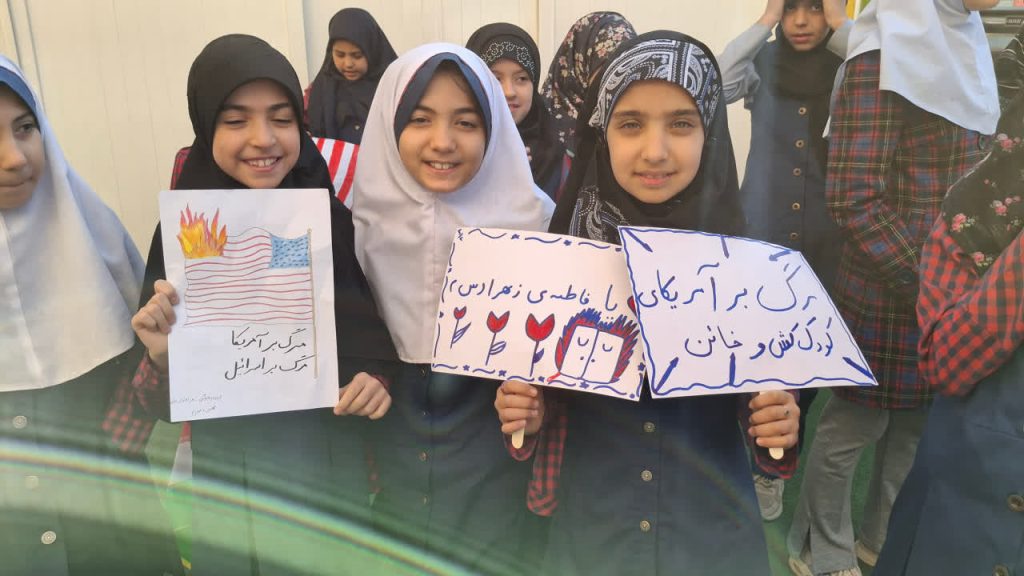 مرگ بر آمریکا
مرگ بر اسرائیل
یا فاطمه‌ی زهرا(س)
مرگ بر آمریکای
کودک کش و خائن